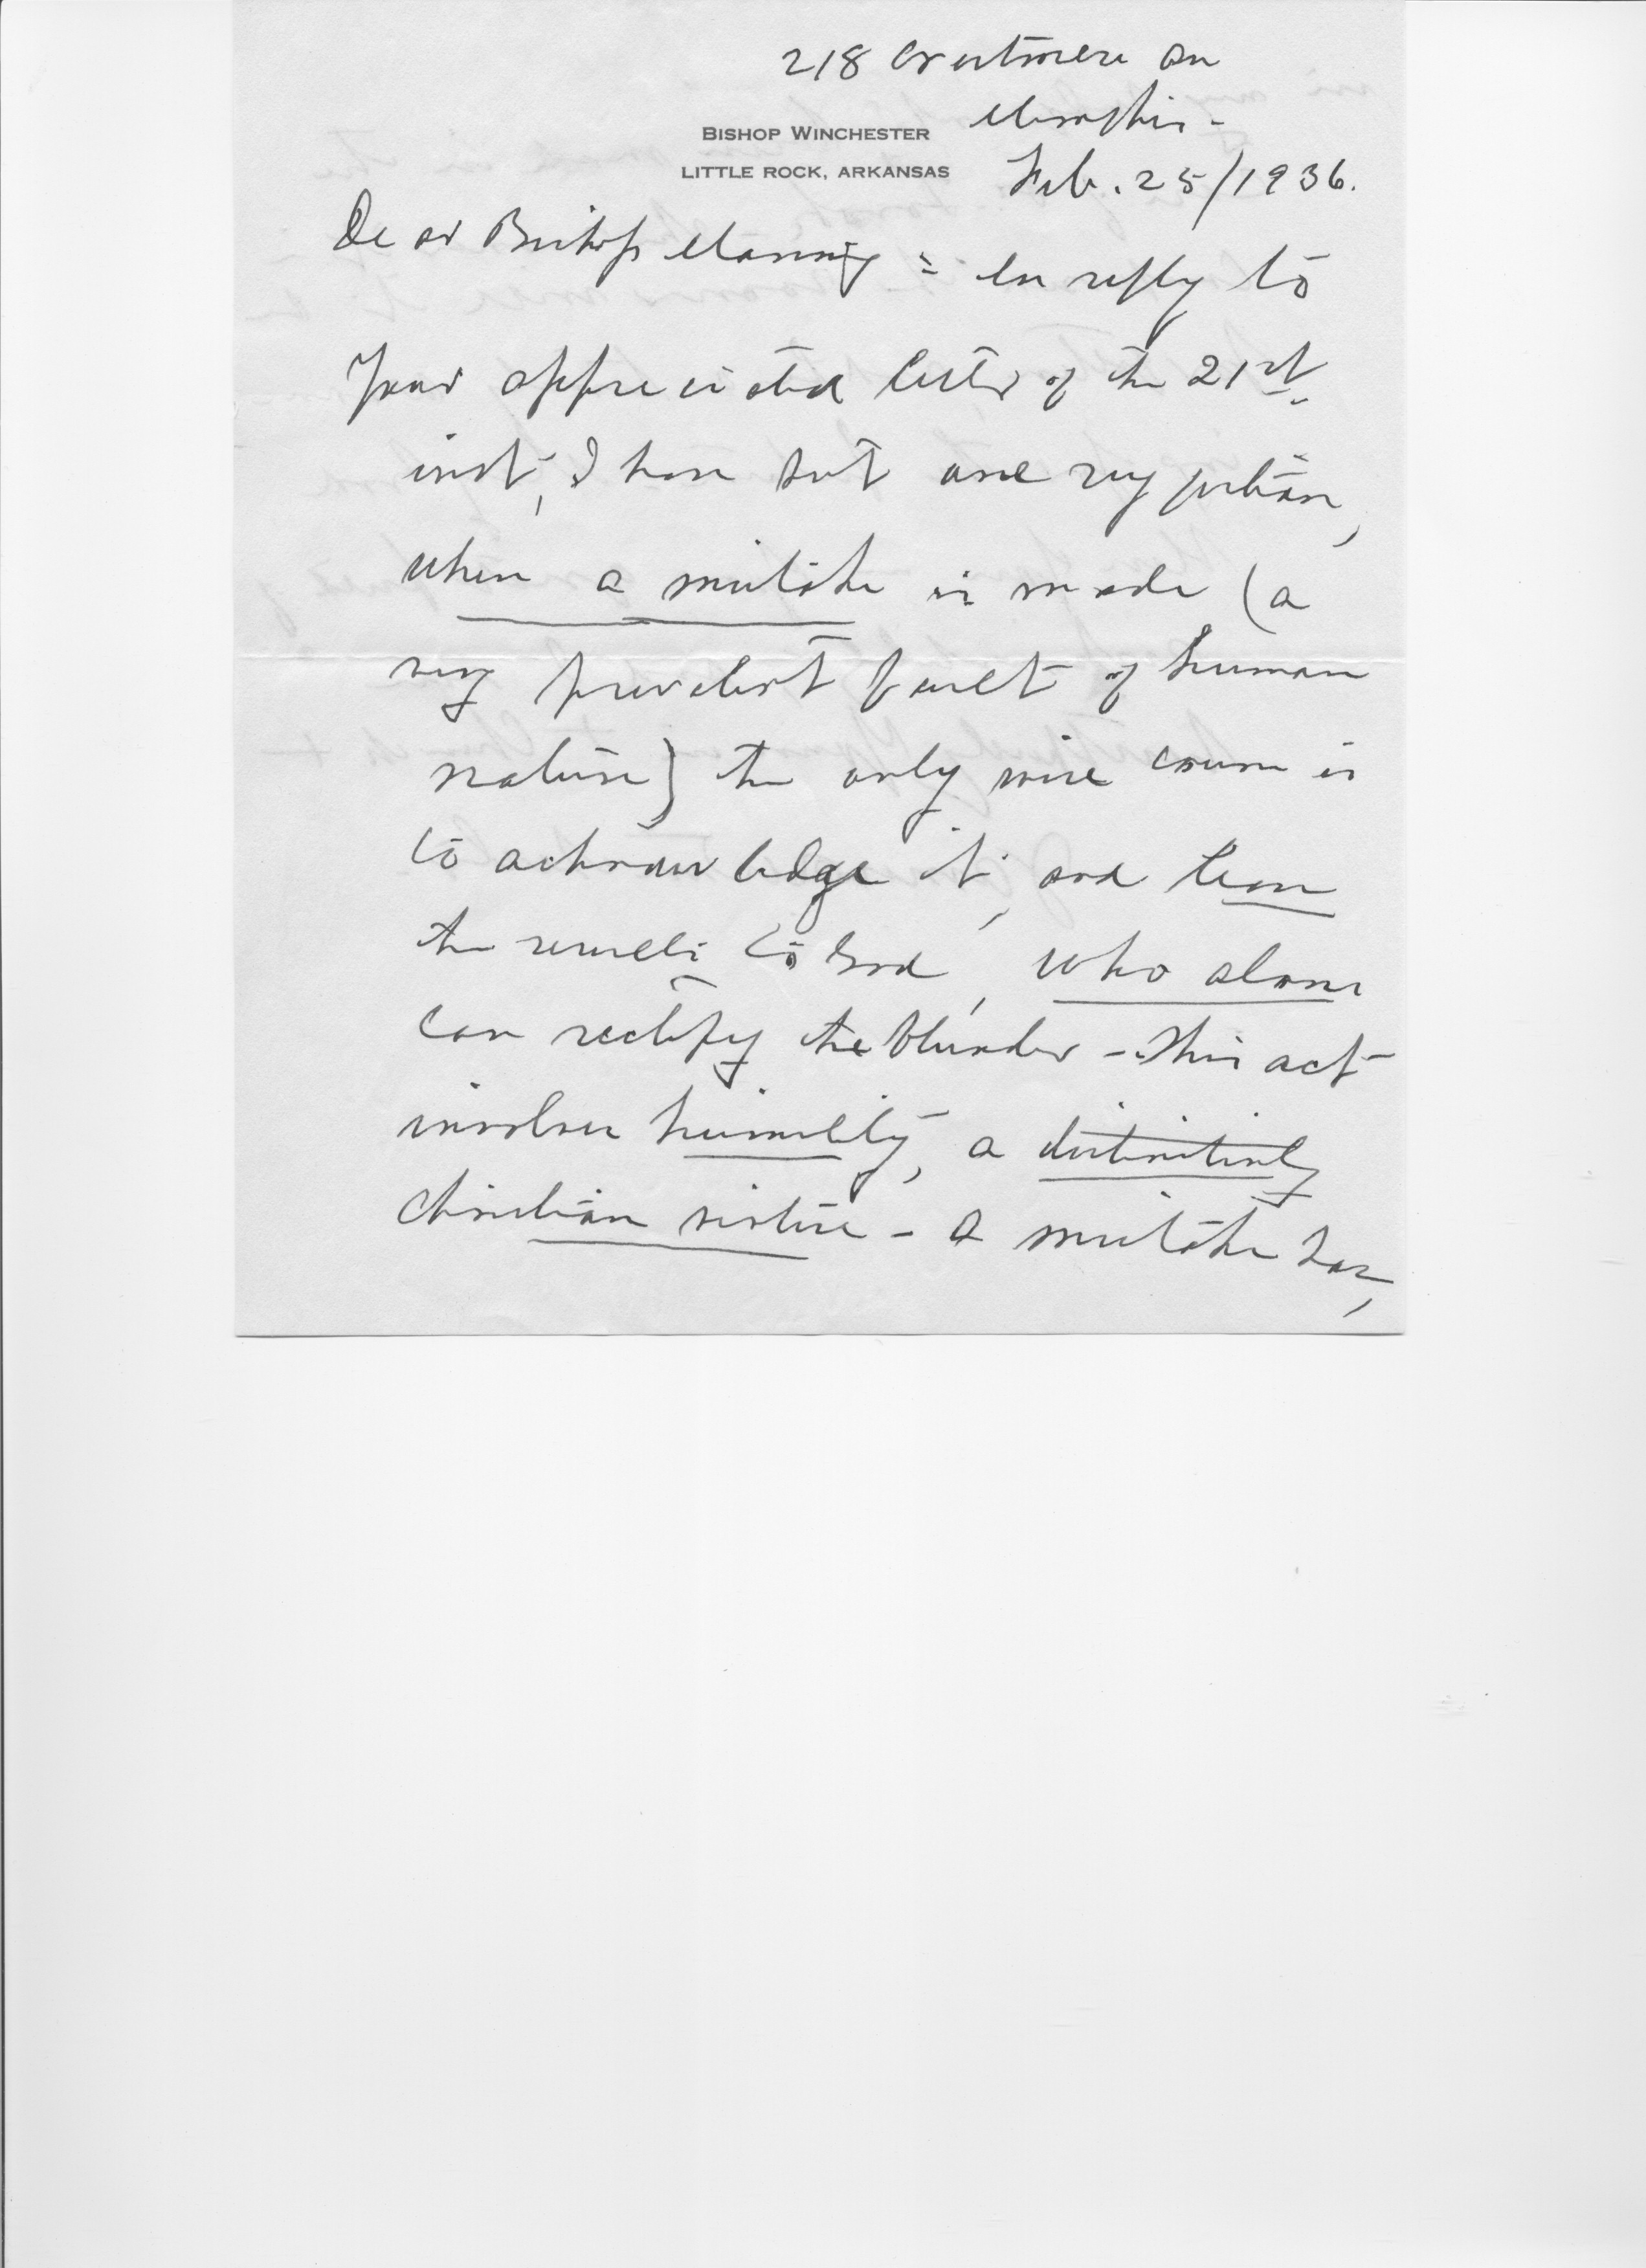 218 Crestmere
Memphis -
BISHOP WINCHESTER
LITTLE ROCK, ARKANSAS
Feb. 25/1936.
Dear Bishop Manning = In reply to
your appreciated letter of the 21st.
inst, I have but one suggestion,
when a mistake is made (a
very prevalent fault of human
nature) the only wise course is
to acknowledge it, and leave
the results to God, who alone
can rectify the blunder - This act
involves humility, a distinctively
Christian virtue - A mistake has,